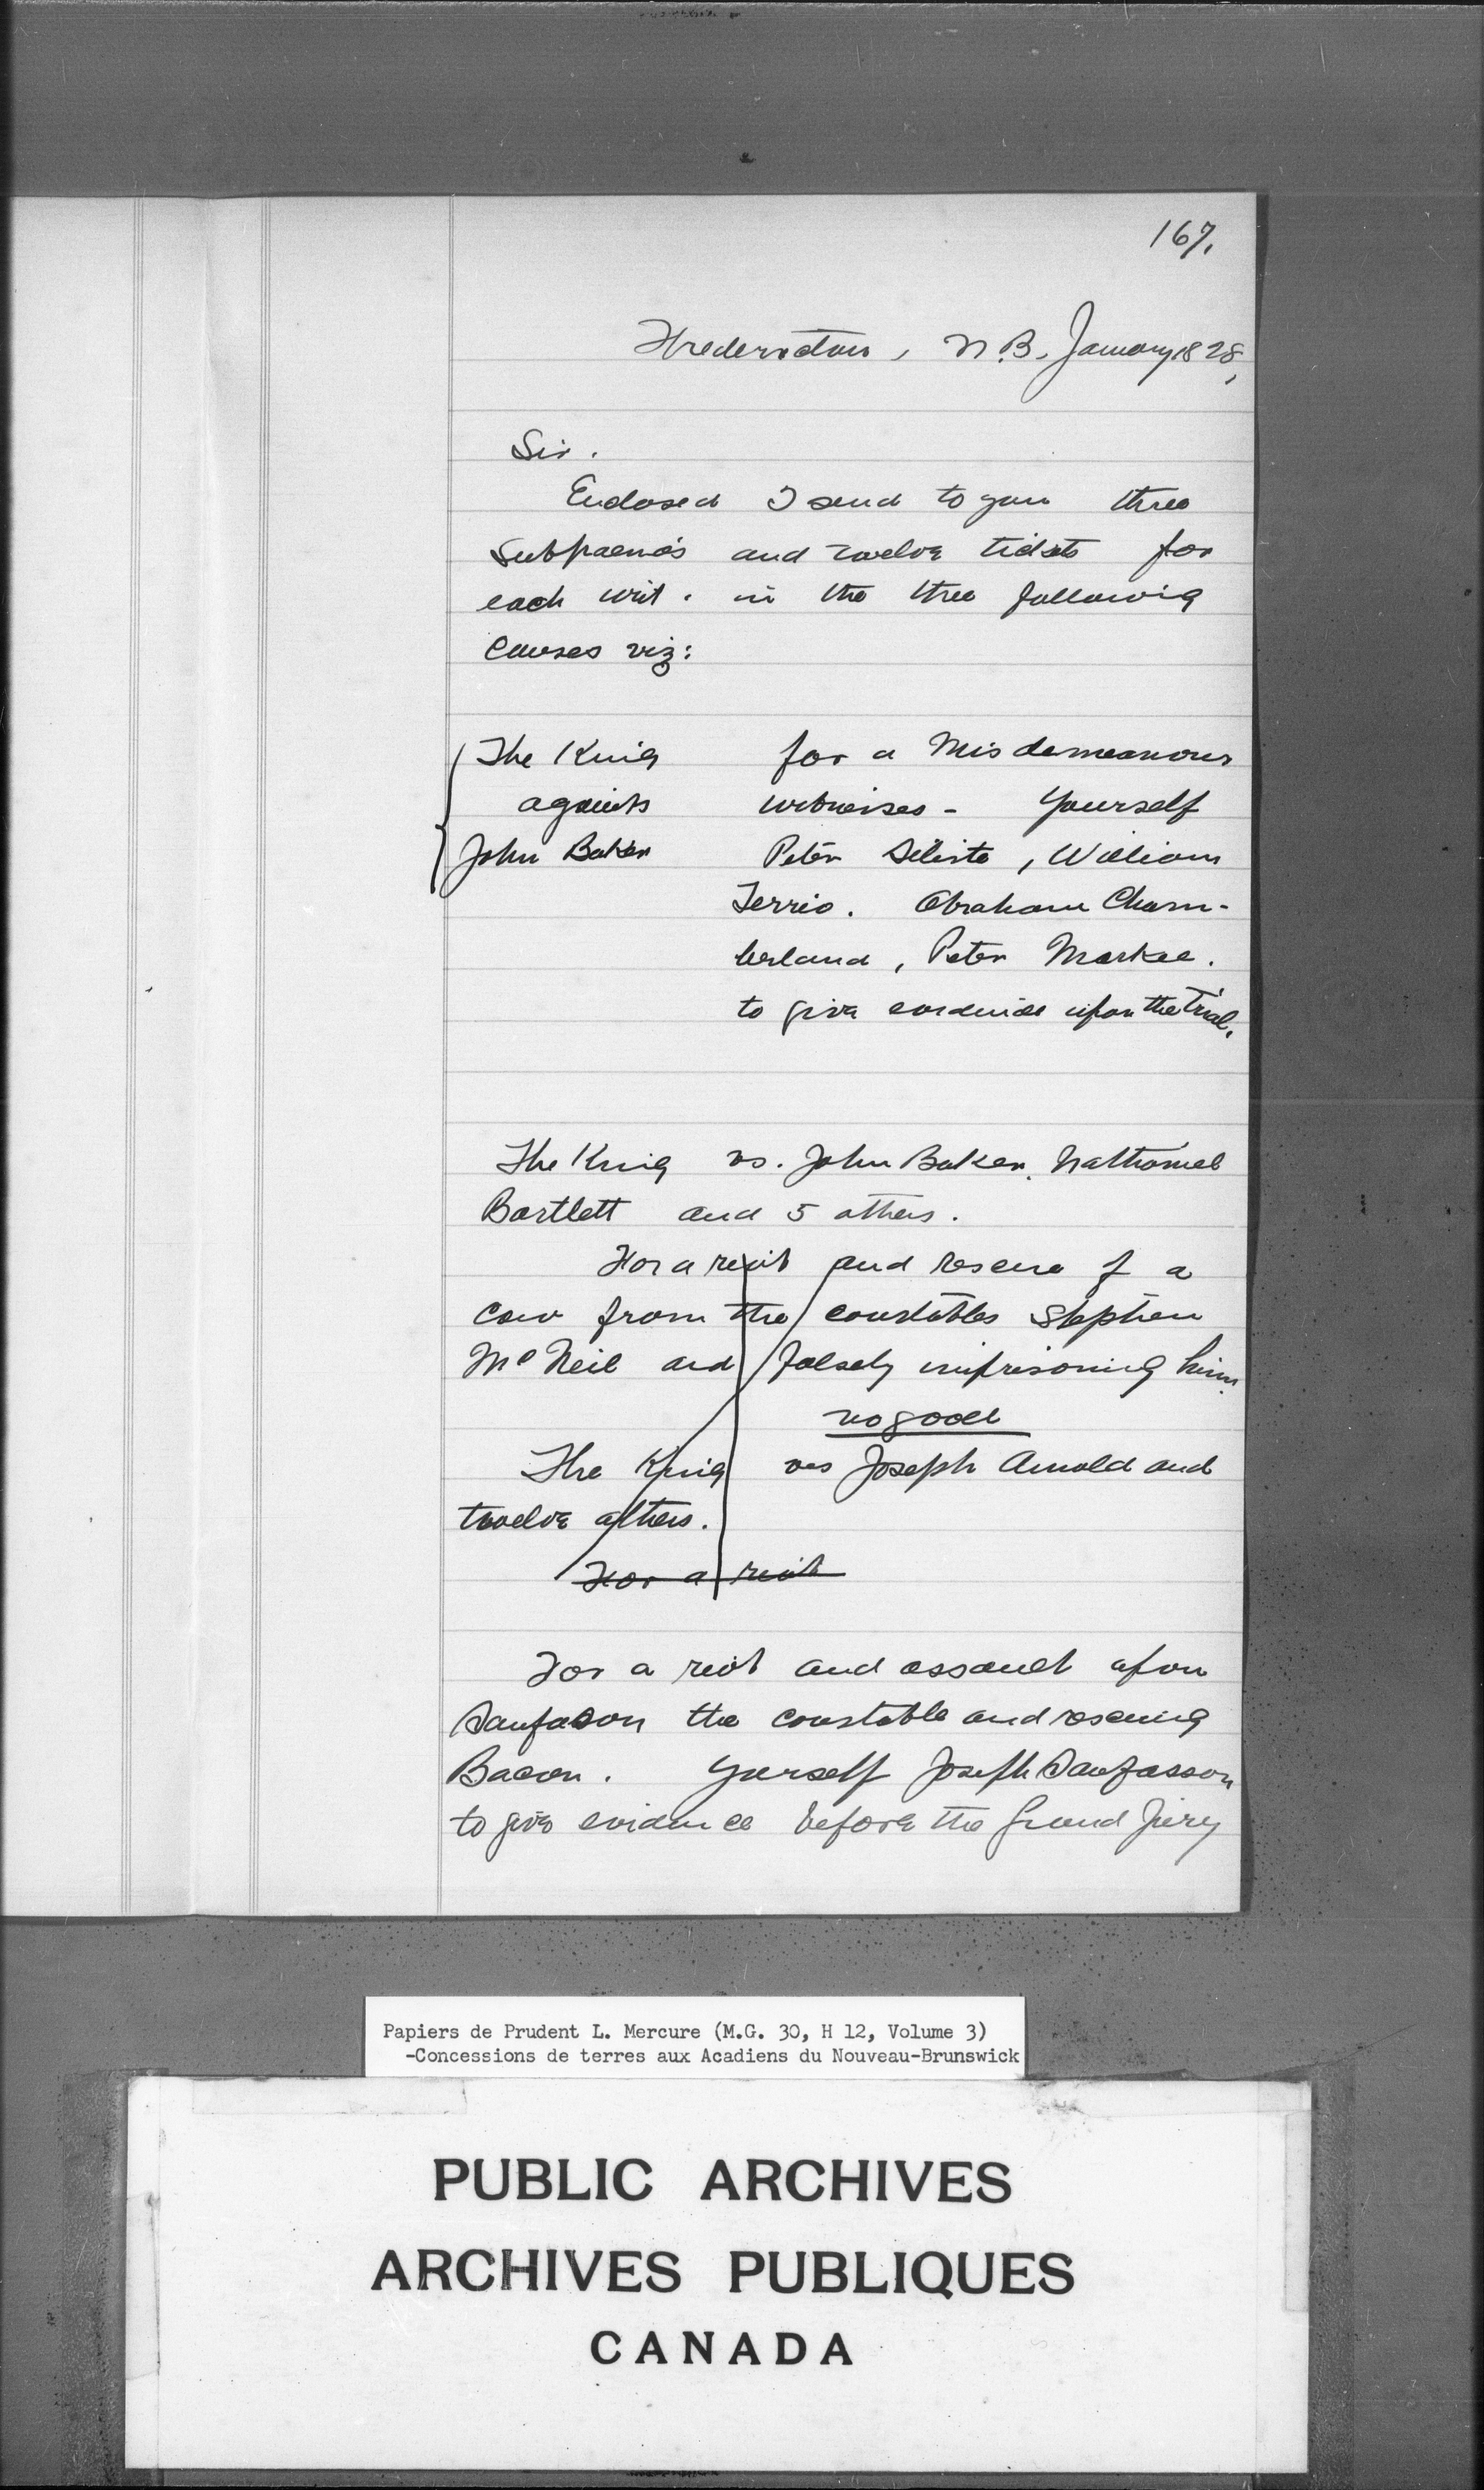 167.
Fredericton, N.B. January 1828,
Sir.
Enclosed I send to you three
Subpaena's and twelve tickets for
each writ. in the three following
Causes viz:
The King for a Misdemeanour
against witnesses - Yourself
John Baker Peter Sileste, William
Terrio. Abraham Cham-
berland, Peter Markee.
to give evidence upon the Trial.
The King vs. John Baker, Nathaniel
Bartlett and 5 others.
For a riot and rescue of a
cow from the constables Stephen
McNeil and falsely imprisoning him.
no good
The King vs Joseph Arnold and
twelve others.
For a riot
For a riot and assault upon
Sanfason the constable and rescuing
Bacon. Yourself Joseph Sanfasson
to give evidence before the Grand Jury
Papiers de Prudent L. Mercure (M.G. 30, H 12, Volume 3)
-Concessions de terres aux Acadiens du Nouveau-Brunswick
PUBLIC ARCHIVES
ARCHIVES PUBLIQUES
CANADA